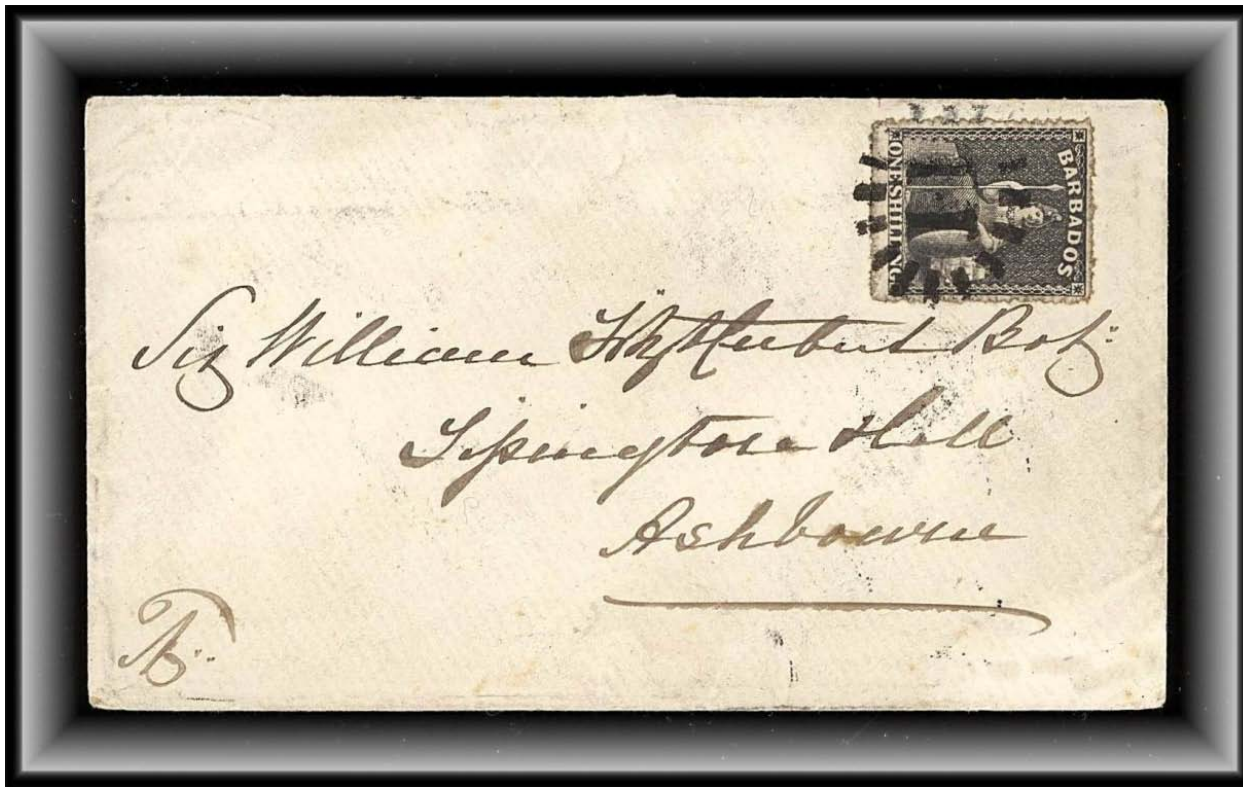 BARBADOS
ONE SHILLING.
Sir William FitzHerbert Bart:
Tissington Hall
Ashbourne